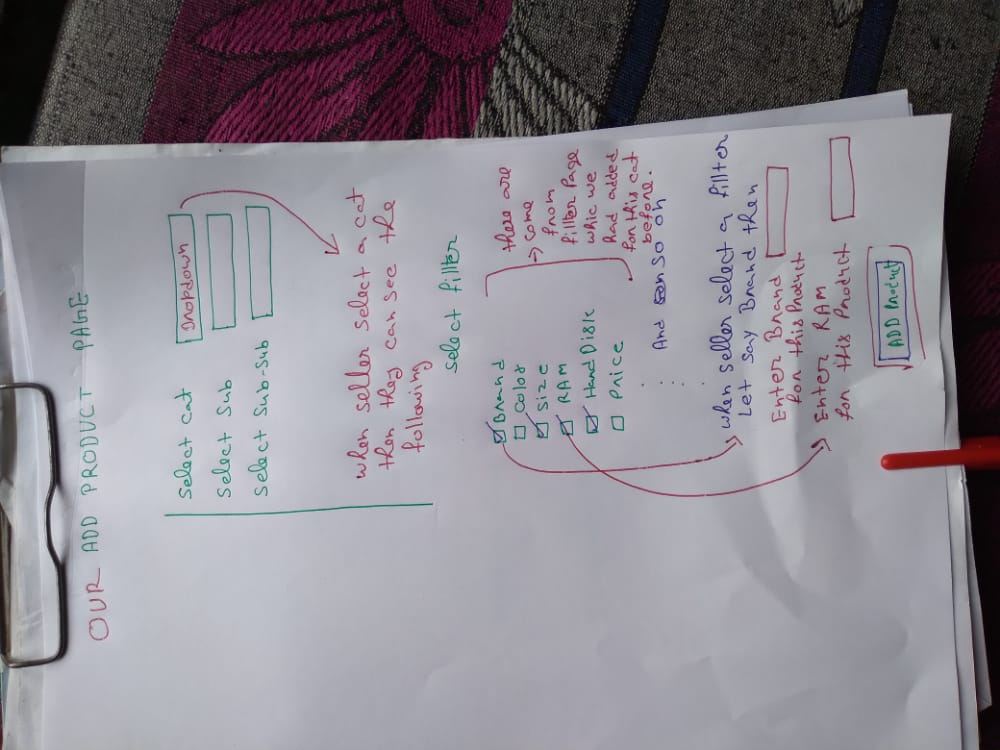 OUR ADD PRODUCT PAGE
Select cat Dropdown
Select Sub
Select Sub-Sub
when seller select a cat
then they can see the
following
Select filter
Brand
Color
Size
RAM
Hand Disk
Price
these are
→ some
from
filler Page
whic we
had added
for this cat
before.
And so on
when seller select a fillter
Let say Brand then
Enter Brand
for this Product
Enter RAM
for this Product
ADD Product